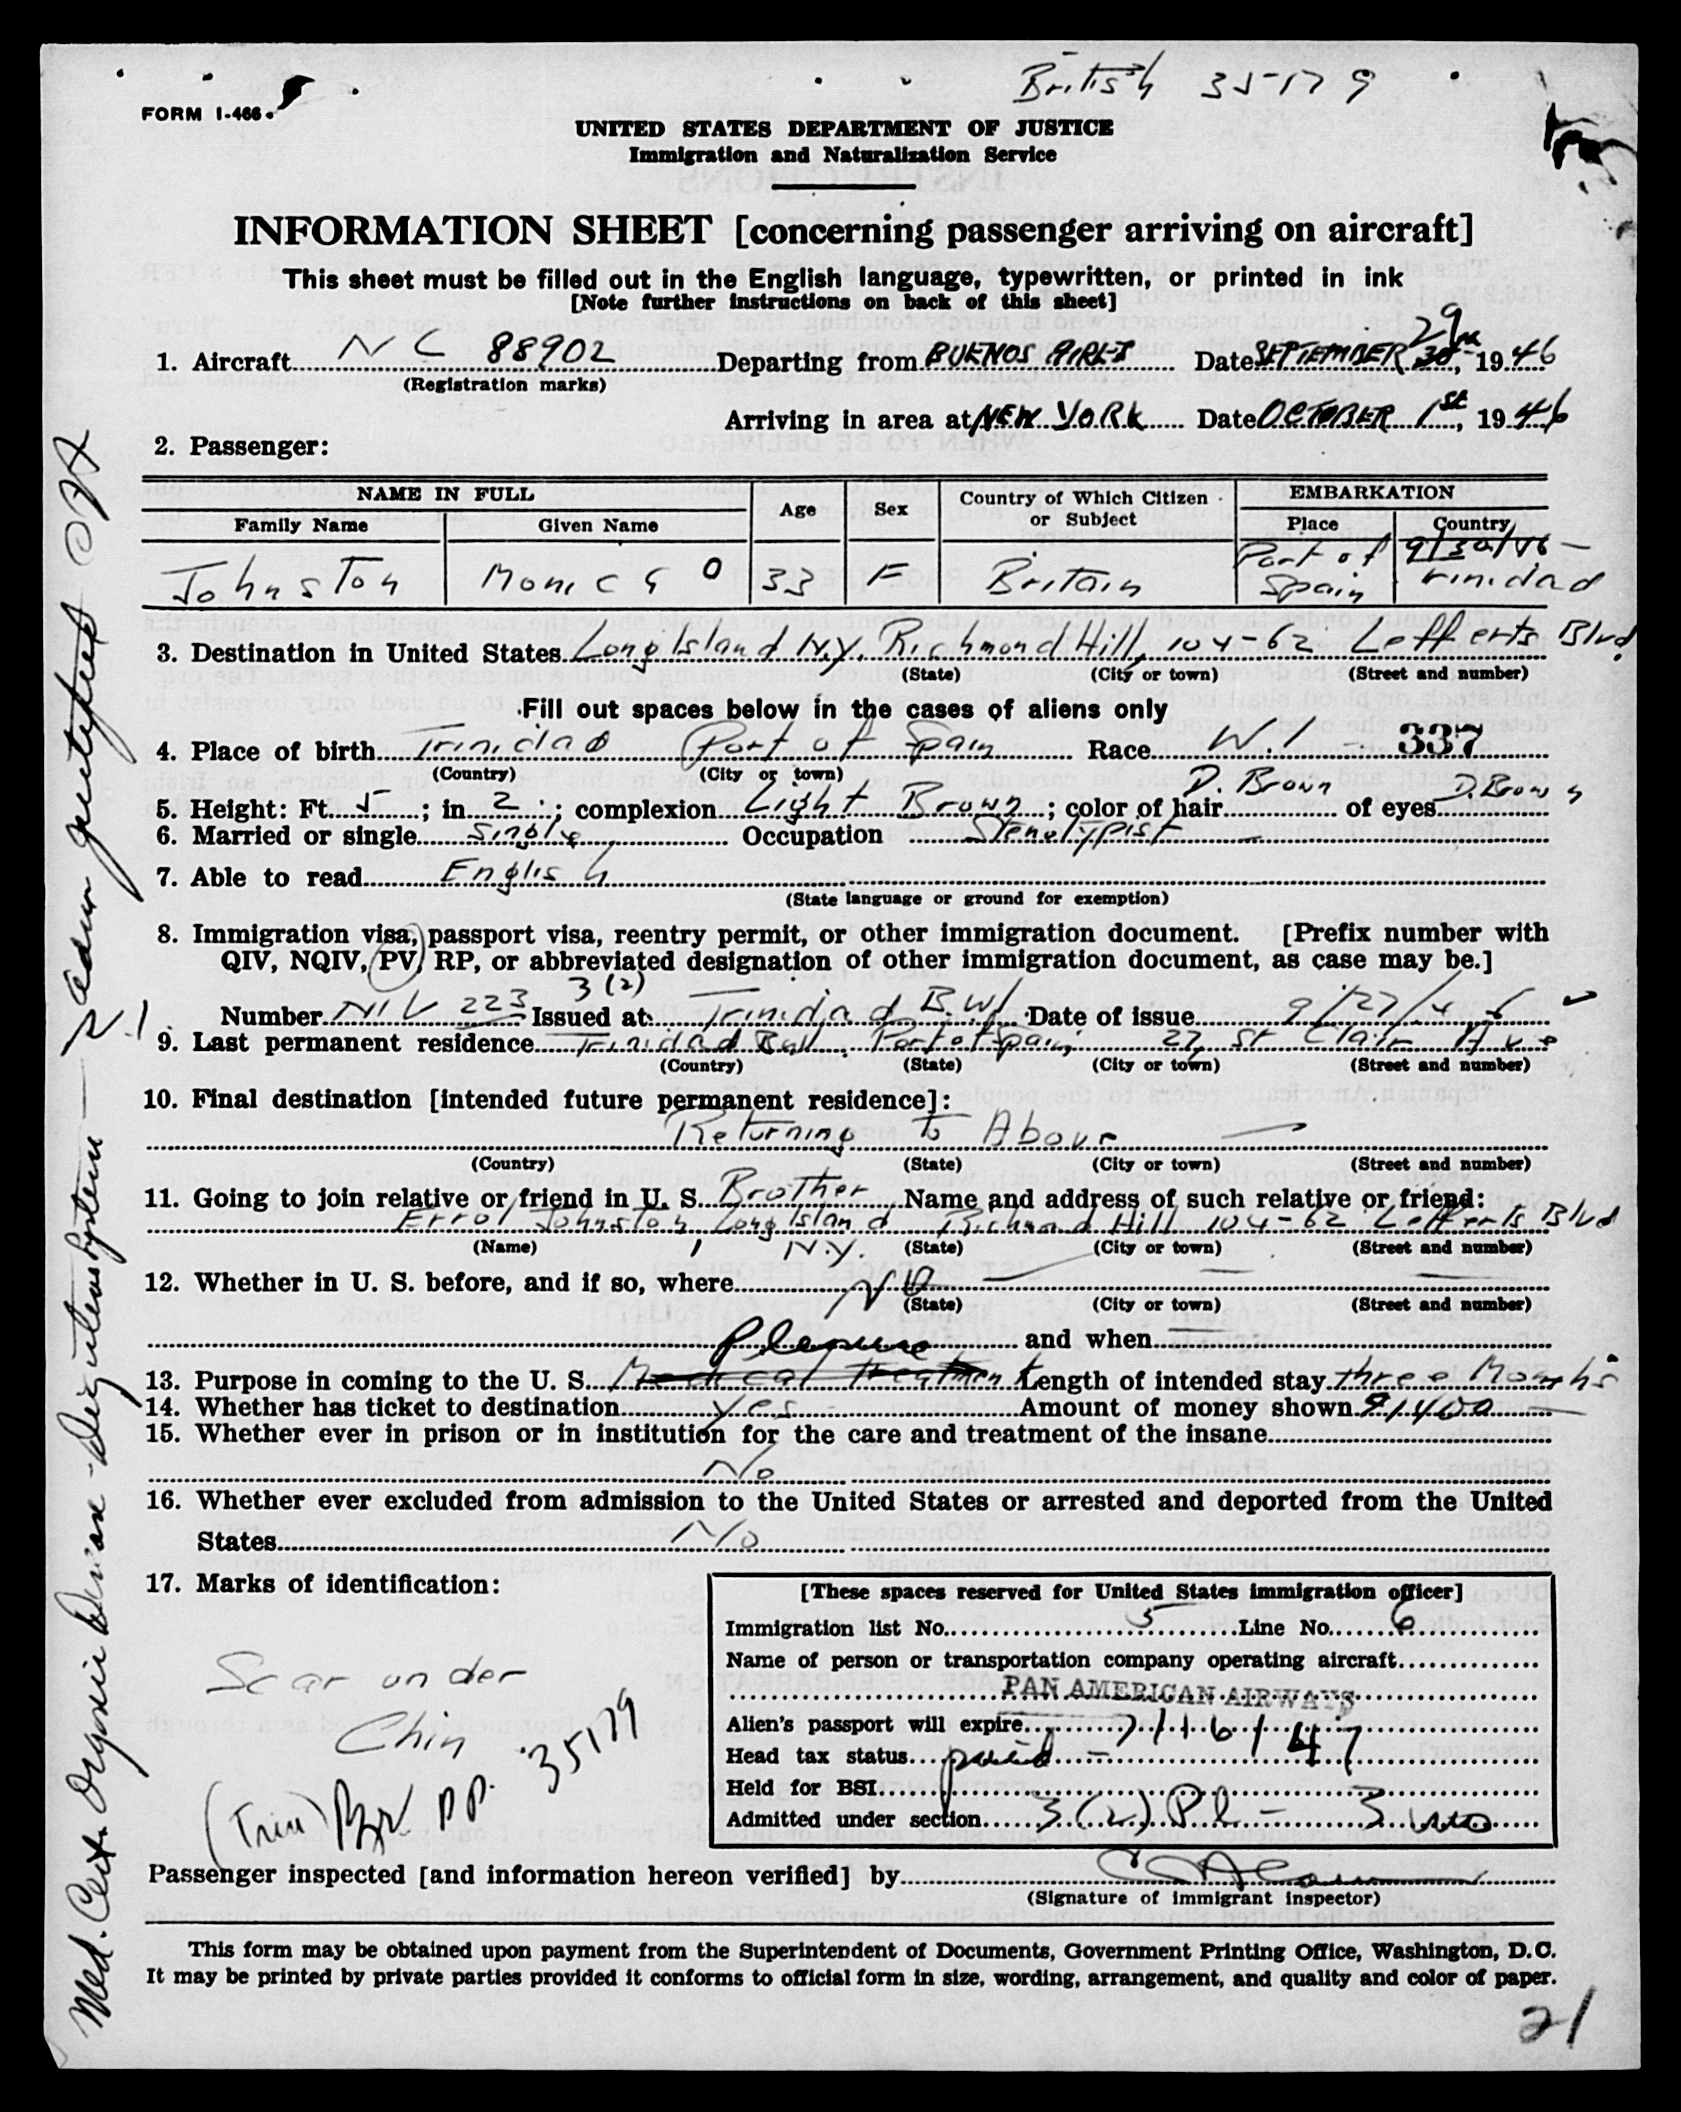 British 35179
FORM I-466
UNITED STATES DEPARTMENT OF JUSTICE
Immigration and Naturalization Service
INFORMATION SHEET [concerning passenger arriving on aircraft]
This sheet must be filled out in the English language, typewritten, or printed in ink
[Note further instructions on back of this sheet]
1. Aircraft NC 88902 Departing from BUENOS AIRES Date SEPTEMBER 29th 30, 1946
(Registration marks)
Arriving in area at NEW YORK Date OCTOBER 1st, 1946
2. Passenger:
NAME IN FULL Age Sex Country of Which Citizen or Subject EMBARKATION
Family Name Given Name Place Country
9/30/46 -
Johnston Monica O 33 F Britain Port of Spain Trinidad
3. Destination in United States Long Island N.Y. Richmond Hill, 104-62 Lefferts Blvd.
(State) (City or town) (Street and number)
Fill out spaces below in the cases of aliens only
4. Place of birth Trinidad Port of Spain Race W.I. 337
(Country) (City or town)
5. Height: Ft. 5; in. 2; complexion Light Brown; color of hair D. Brown of eyes D. Brown
6. Married or single Single Occupation Stenotypist
7. Able to read English
(State language or ground for exemption)
8. Immigration visa, passport visa, reentry permit, or other immigration document. [Prefix number with
QIV, NQIV, PV, RP, or abbreviated designation of other immigration document, as case may be.]
3(2)
Number NIV 223 Issued at Trinidad B.W.I. Date of issue 9/27/46
9. Last permanent residence Trinidad B.W.I. Port of Spain 27, St Clair Ave
(Country) (State) (City or town) (Street and number)
10. Final destination [intended future permanent residence]:
Returning to Above
(Country) (State) (City or town) (Street and number)
11. Going to join relative or friend in U. S. Brother Name and address of such relative or friend:
Errol Johnston, Long Island Richmond Hill 104-62 Lefferts Blvd
(Name) N.Y. (State) (City or town) (Street and number)
12. Whether in U. S. before, and if so, where No
(State) (City or town) (Street and number)
and when
Pleasure
13. Purpose in coming to the U. S. Medical Treatment Length of intended stay three Months
14. Whether has ticket to destination Yes Amount of money shown $1400
15. Whether ever in prison or in institution for the care and treatment of the insane
No
16. Whether ever excluded from admission to the United States or arrested and deported from the United
States No
17. Marks of identification:
Scar under
Chin
(Trin) Br PP. 35179
[These spaces reserved for United States immigration officer]
Immigration list No. 5 Line No. 6
Name of person or transportation company operating aircraft
PAN AMERICAN AIRWAYS
Alien's passport will expire 7/16/47
Head tax status paid -
Held for BSI
Admitted under section 3(2) Pl - 3 mos
Passenger inspected [and information hereon verified] by
(Signature of immigrant inspector)
This form may be obtained upon payment from the Superintendent of Documents, Government Printing Office, Washington, D.C.
It may be printed by private parties provided it conforms to official form in size, wording, arrangement, and quality and color of paper.
21
Med. Cert. Organic Disease